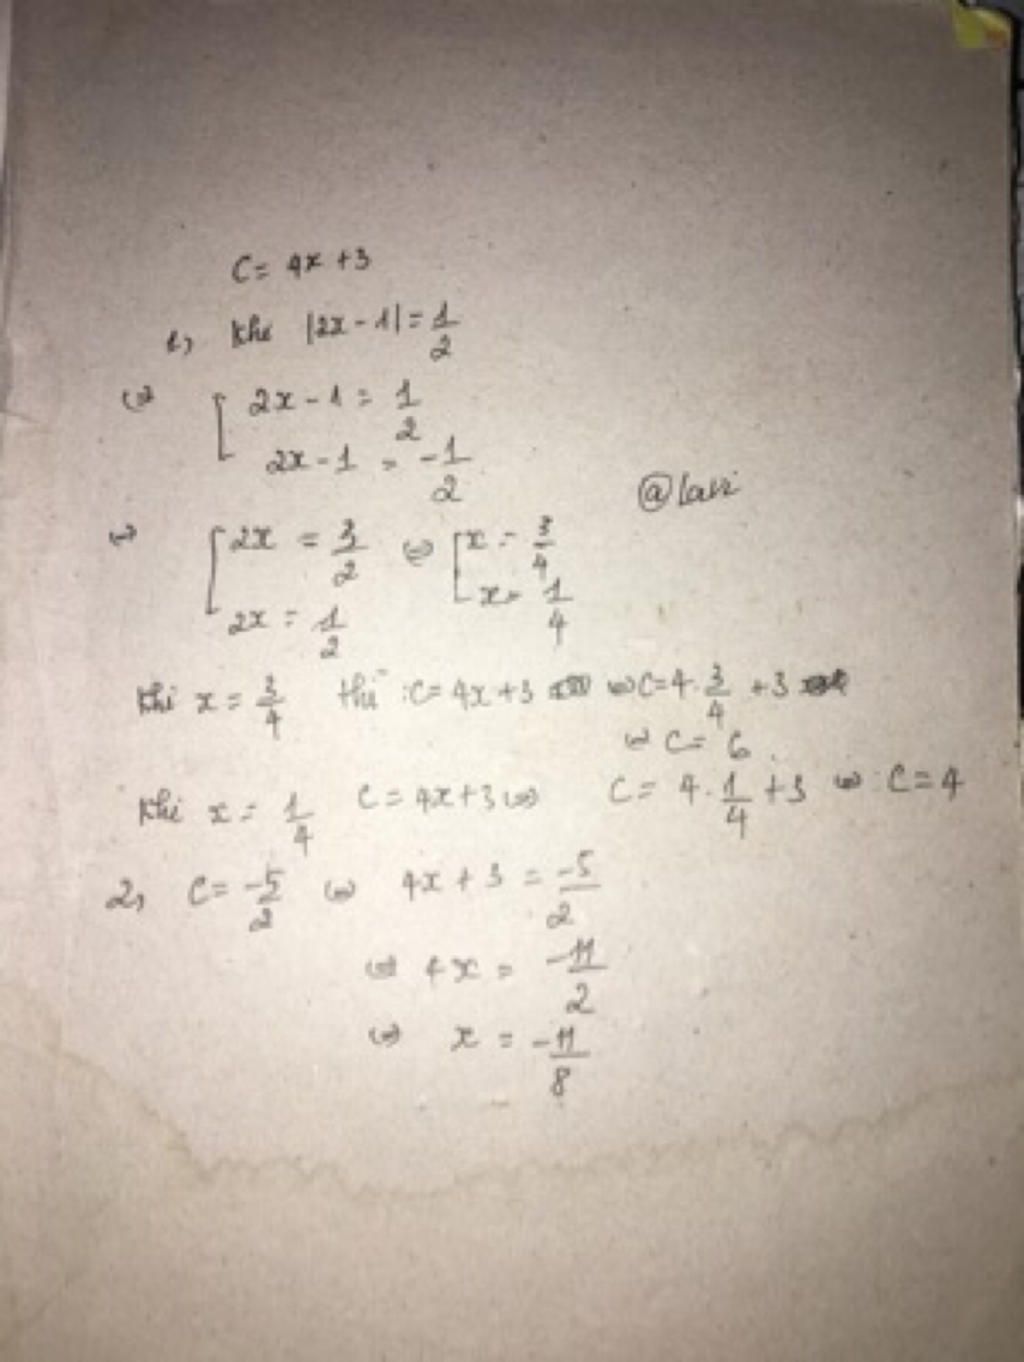 C = 4x + 3
1, Khi |2x - 1| = 1/2
⇔ [ 2x - 1 = 1/2
2x - 1 = -1/2
@lavi
⇔ [ 2x = 3/2 ⇔ [ x = 3/4
2x = 1/2 x = 1/4
Khi x = 3/4 thì : C = 4x + 3 ⇔ C = 4 . 3/4 + 3
⇔ C = 6
Khi x = 1/4 C = 4x + 3 ⇔ C = 4 . 1/4 + 3 ⇔ C = 4
2, C = -5/2 ⇔ 4x + 3 = -5/2
⇔ 4x = -11/2
⇔ x = -11/8